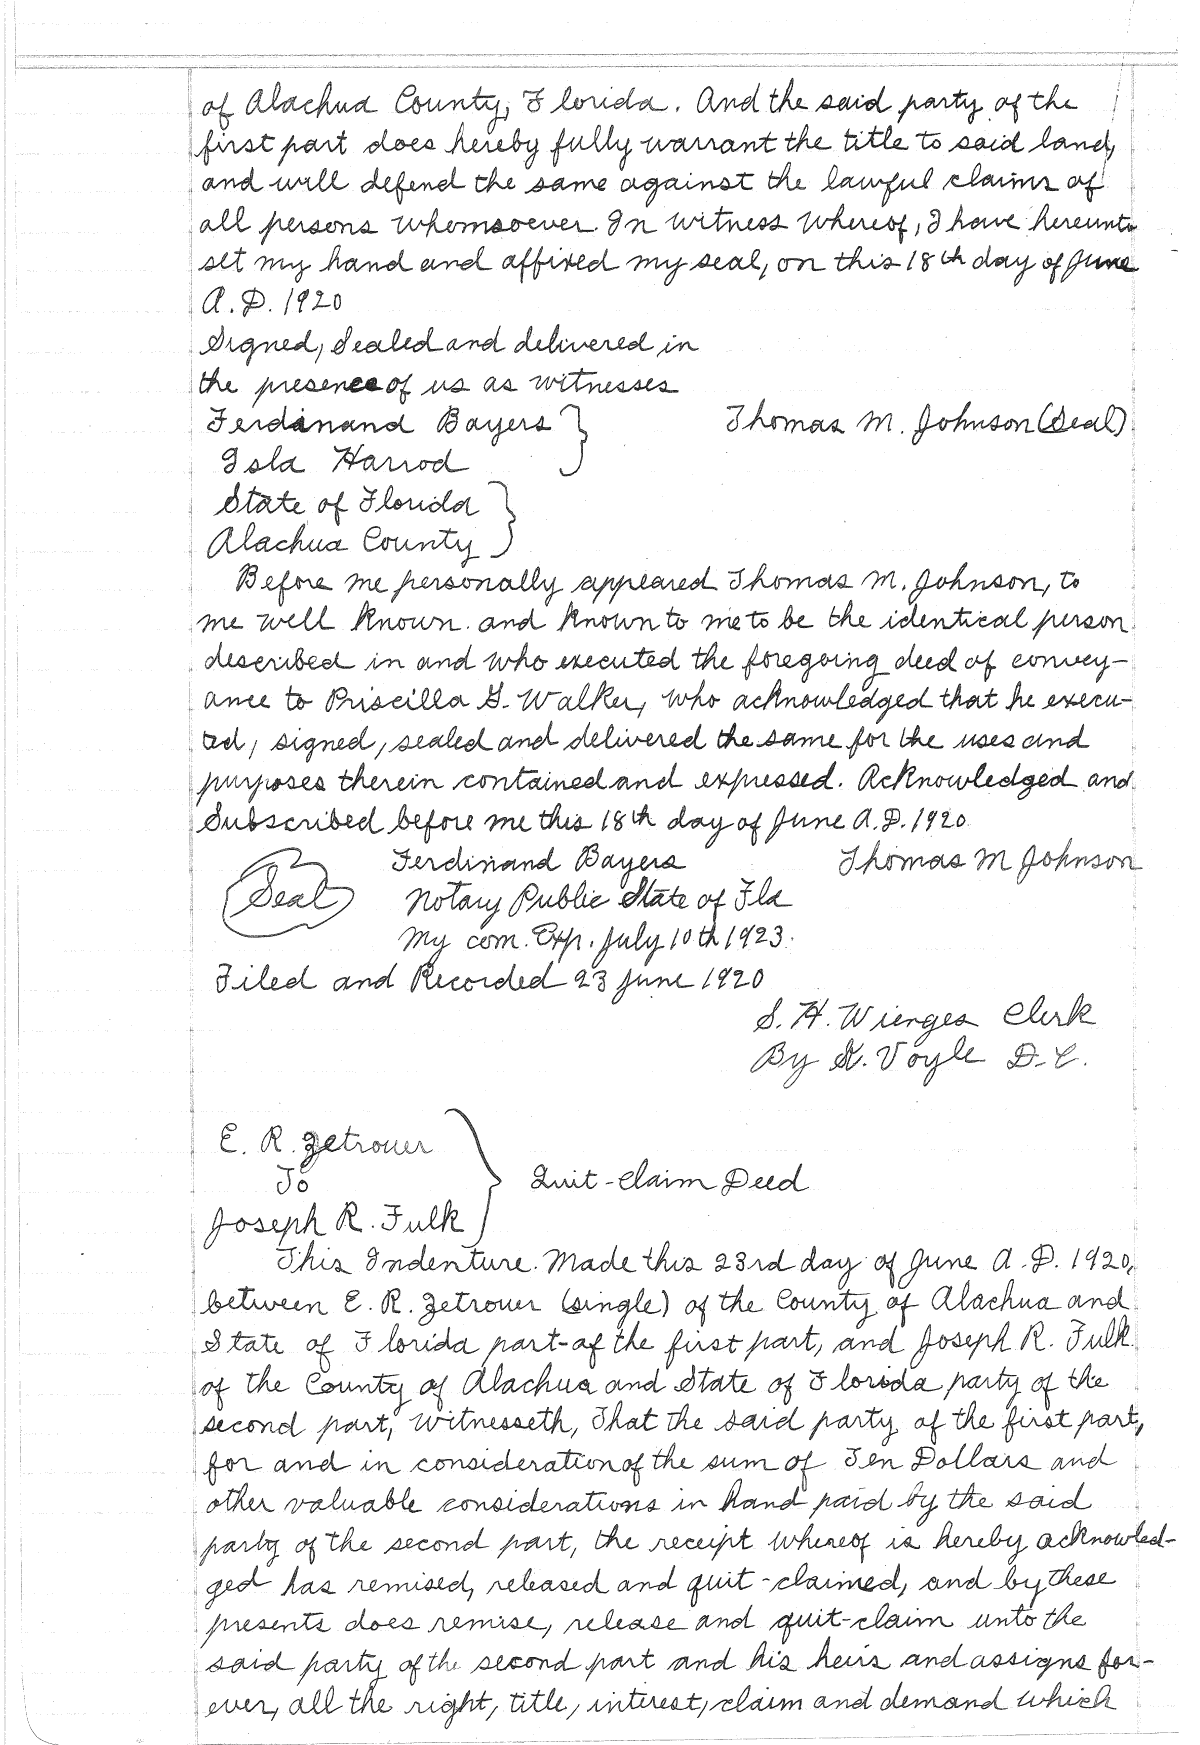 of Alachua County, Florida. And the said party of the
first part does hereby fully warrant the title to said land,
and will defend the same against the lawful claims of
all persons whomsoever. In witness whereof, I have hereunto
set my hand and affixed my seal, on this 18th day of June
A.D. 1920
Signed, Sealed and delivered in
the presence of us as witnesses
Ferdinand Bayers
Thomas M. Johnson (Seal)
Isla Harrod
State of Florida
Alachua County
Before me personally appeared Thomas M. Johnson, to
me well known. and known to me to be the identical person
described in and who executed the foregoing deed of convey-
ance to Priscilla G. Walker, who acknowledged that he execu-
ted, signed, sealed and delivered the same for the uses and
purposes therein contained and expressed. Acknowledged and
Subscribed before me this 18th day of June A.D. 1920
Ferdinand Bayers Thomas M Johnson
Seal Notary Public State of Fla
My com. Exp. July 10th 1923.
Filed and Recorded 23 June 1920
S. H. Wienges Clerk
By K. Voyle D.C.
E. R. Zetrouer
To
Quit-Claim Deed
Joseph R. Fulk
This Indenture. Made this 23rd day of June A.D. 1920,
between E. R. Zetrouer (single) of the County of Alachua and
State of Florida part-of the first part, and Joseph R. Fulk
of the County of Alachua and State of Florida party of the
second part, witnesseth, That the said party of the first part,
for and in consideration of the sum of Ten Dollars and
other valuable considerations in hand paid by the said
party of the second part, the receipt whereof is hereby acknowled-
ged has remised, released and quit-claimed, and by these
presents does remise, release and quit-claim unto the
said party of the second part and his heirs and assigns for-
ever, all the right, title, interest, claim and demand which